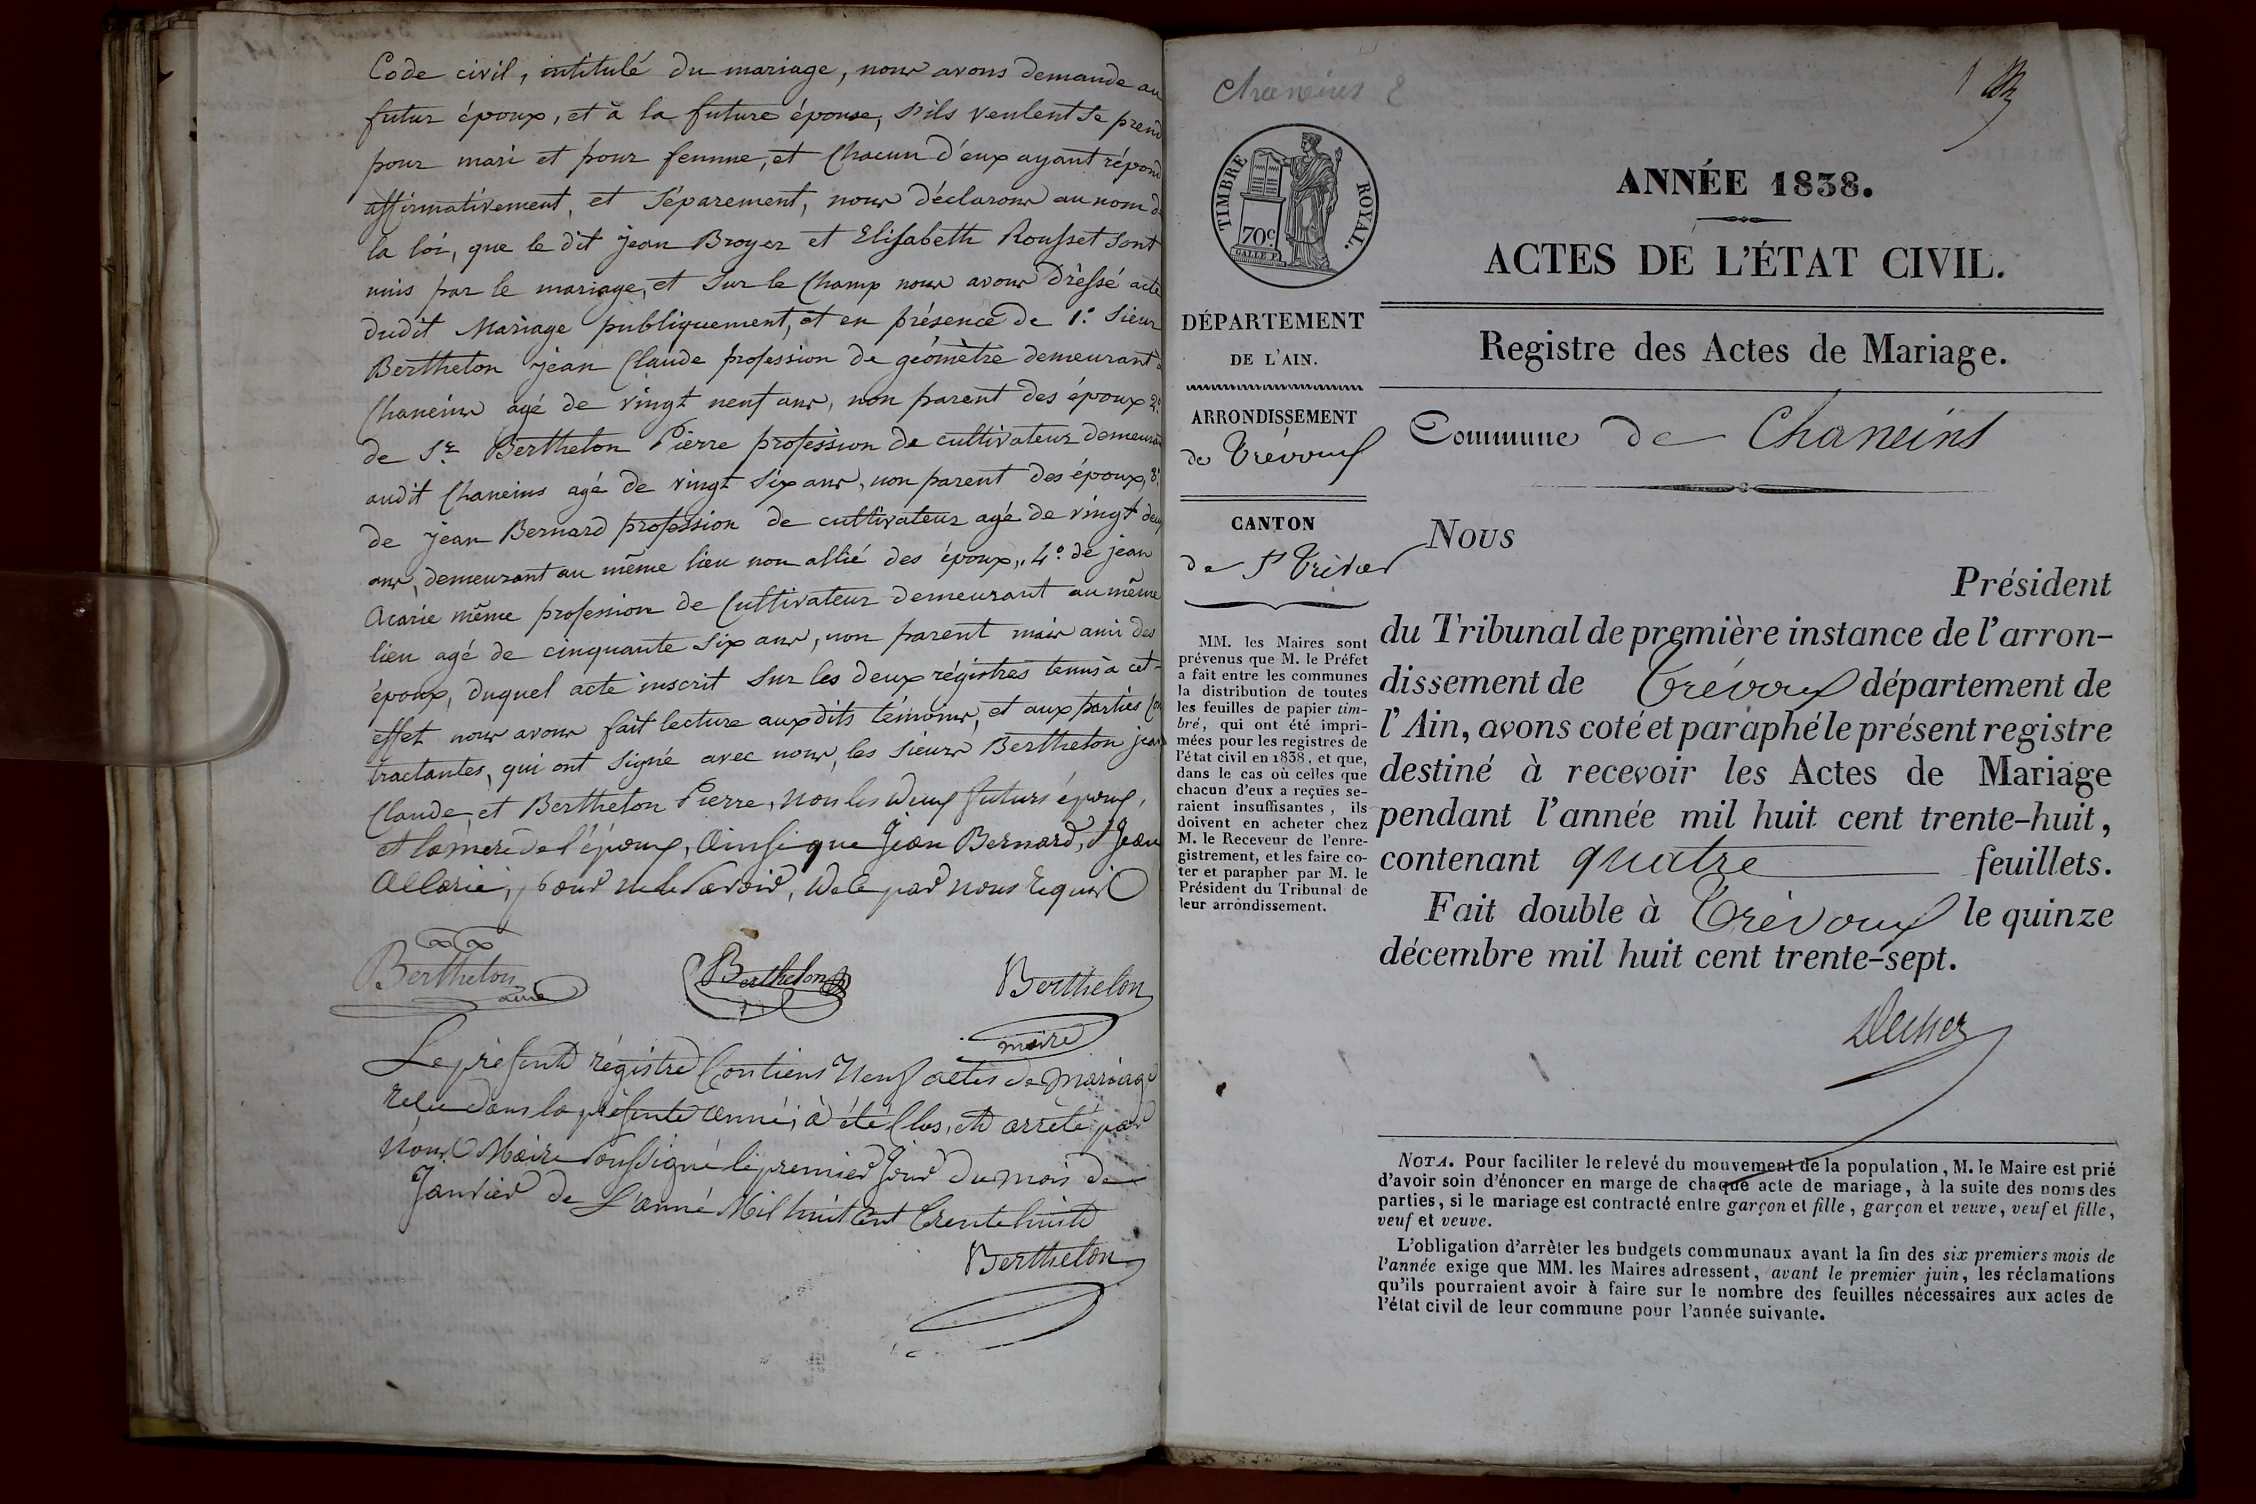 Code civil, intitulé du mariage, nous avons demandé au
futur époux, et à la future épouse, s'ils veulent se prend
pour mari et pour femme, et chacun d'eux ayant répond
affirmativement, et séparement, nous déclarons au nom d
la loi, que le dit jean Broyer et Elisabeth Rousset sont
unis par le mariage, et sur le champ nous avons dréssé acte
dudit Mariage publiquement, et en présence de 1.º Sieur
Berthelon jean Claude profession de géomètre demeurant à
Chaneins agé de vingt neuf ans, non parent des époux 2º
de Sr. Berthelon Pierre profession de cultivateur demeurant
audit Chaneins agé de vingt six ans, non parent des époux, 3º
de jean Bernard profession de cultivateur agé de vingt deux
ans, demeurant au même lieu non allié des époux,, 4.º de jean
Acarie même profession de cultivateur demeurant au même
lieu agé de cinquante six ans, non parent mais ami des
époux, duquel acte inscrit sur les deux régistres tenus à cet-
effet nous avons fait lecture auxdits témoins, et aux parties Con
tractantes, qui ont signé avec nous, les sieurs Berthelon jean
Claude, et Berthelon Pierre, non les deux futurs époux,
et la mère de l'époux, ainsi que Jean Bernard, et Jean
Allarie, pour ne le savoir, de ce par nous requis
Berthelon
ainé
Berthelon
Berthelon
maire
Le présent régistre contiens neuf actes de mariage
reçu dans la présente anné, à été clos, et arrêté par
nous Maire soussigné le premier jour du mois de
Janvier de L'anné Mil huit cent trente huit
Berthelon
Chaneins 8
1
TIMBRE ROYAL.
70c.
ANNÉE 1838.
ACTES DE L'ÉTAT CIVIL.
Registre des Actes de Mariage.
DÉPARTEMENT
DE L'AIN.
ARRONDISSEMENT
de Trévoux
CANTON
de St Trivier
MM. les Maires sont
prévenus que M. le Préfet
a fait entre les communes
la distribution de toutes
les feuilles de papier tim-
bré, qui ont été impri-
mées pour les registres de
l'état civil en 1838, et que,
dans le cas où celles que
chacun d'eux a reçues se-
raient insuffisantes, ils
doivent en acheter chez
M. le Receveur de l'enre-
gistrement, et les faire co-
ter et parapher par M. le
Président du Tribunal de
leur arrondissement.
Commune de Chaneins
Nous
Président
du Tribunal de première instance de l'arron-
dissement de Trévoux département de
l'Ain, avons coté et paraphé le présent registre
destiné à recevoir les Actes de Mariage
pendant l'année mil huit cent trente-huit,
contenant quatre feuillets.
Fait double à Trévoux le quinze
décembre mil huit cent trente-sept.
NOTA. Pour faciliter le relevé du mouvement de la population, M. le Maire est prié
d'avoir soin d'énoncer en marge de chaque acte de mariage, à la suite des noms des
parties, si le mariage est contracté entre garçon et fille, garçon et veuve, veuf et fille,
veuf et veuve.
L'obligation d'arrêter les budgets communaux avant la fin des six premiers mois de
l'année exige que MM. les Maires adressent, avant le premier juin, les réclamations
qu'ils pourraient avoir à faire sur le nombre des feuilles nécessaires aux actes de
l'état civil de leur commune pour l'année suivante.